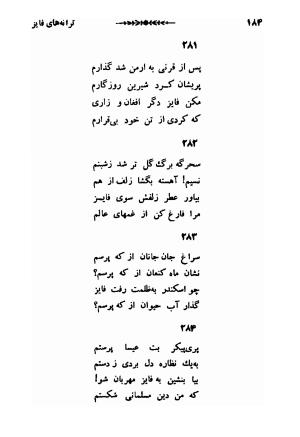 ۱۸۴ ترانه‌های فایز
۲۸۱
پس از قرنی به ارمن شد گذارم
پریشان کرد شیرین روزگارم
مکن فایز دگر افغان و زاری
که کردی از تن خود بی‌قرارم
۲۸۲
سحرگه برگ گل تر شد زشبنم
نسیم! آهسته بگشا زلف از هم
بیاور عطر زلفش سوی فایز
مرا فارغ کن از غمهای عالم
۲۸۳
سراغ جان جانان از که پرسم
نشان ماه کنعان از که پرسم؟
چو اسکندر به‌ظلمت رفت فایز
گذار آب حیوان از که پرسم؟
۲۸۴
پری‌پیکر بت عیسا پرستم
به‌یك نظاره دل بردی زدستم
بیا بنشین به فایز مهربان شو!
که من دین مسلمانی شکستم